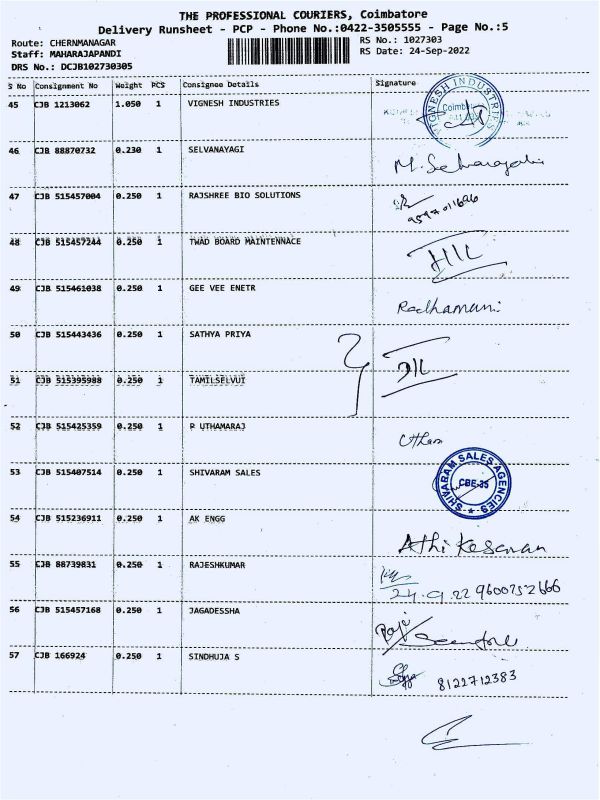 THE PROFESSIONAL COURIERS, Coimbatore
Delivery Runsheet - PCP - Phone No.:0422-3505555 - Page No.:5
Route: CHERNMANAGAR
RS No. : 1027303
Staff: MAHARAJAPANDI
RS Date: 24-Sep-2022
DRS No.: DCJB102730305
S No Consignment No Weight PCS Consignee Details Signature
45 CJB 1213062 1.050 1 VIGNESH INDUSTRIES
VIGNESH INDUSTRIES
46 CJB 88870732 0.230 1 SELVANAYAGI
47 CJB 515457004 0.250 1 RAJSHREE BIO SOLUTIONS
48 CJB 515457244 0.250 1 TWAD BOARD MAINTENNACE
49 CJB 515461038 0.250 1 GEE VEE ENETR Radhamani
50 CJB 515443436 0.250 1 SATHYA PRIYA
51 CJB 515395988 0.250 1 TAMILSELVUI
52 CJB 515425359 0.250 1 P UTHAMARAJ
53 CJB 515407514 0.250 1 SHIVARAM SALES
SHIVARAM SALES AGENCIES
CBE-35
54 CJB 515236911 0.250 1 AK ENGG
55 CJB 88739831 0.250 1 RAJESHKUMAR
24.9.22 9600752666
56 CJB 515457168 0.250 1 JAGADESSHA
57 CJB 166924 0.250 1 SINDHUJA S
8122712383